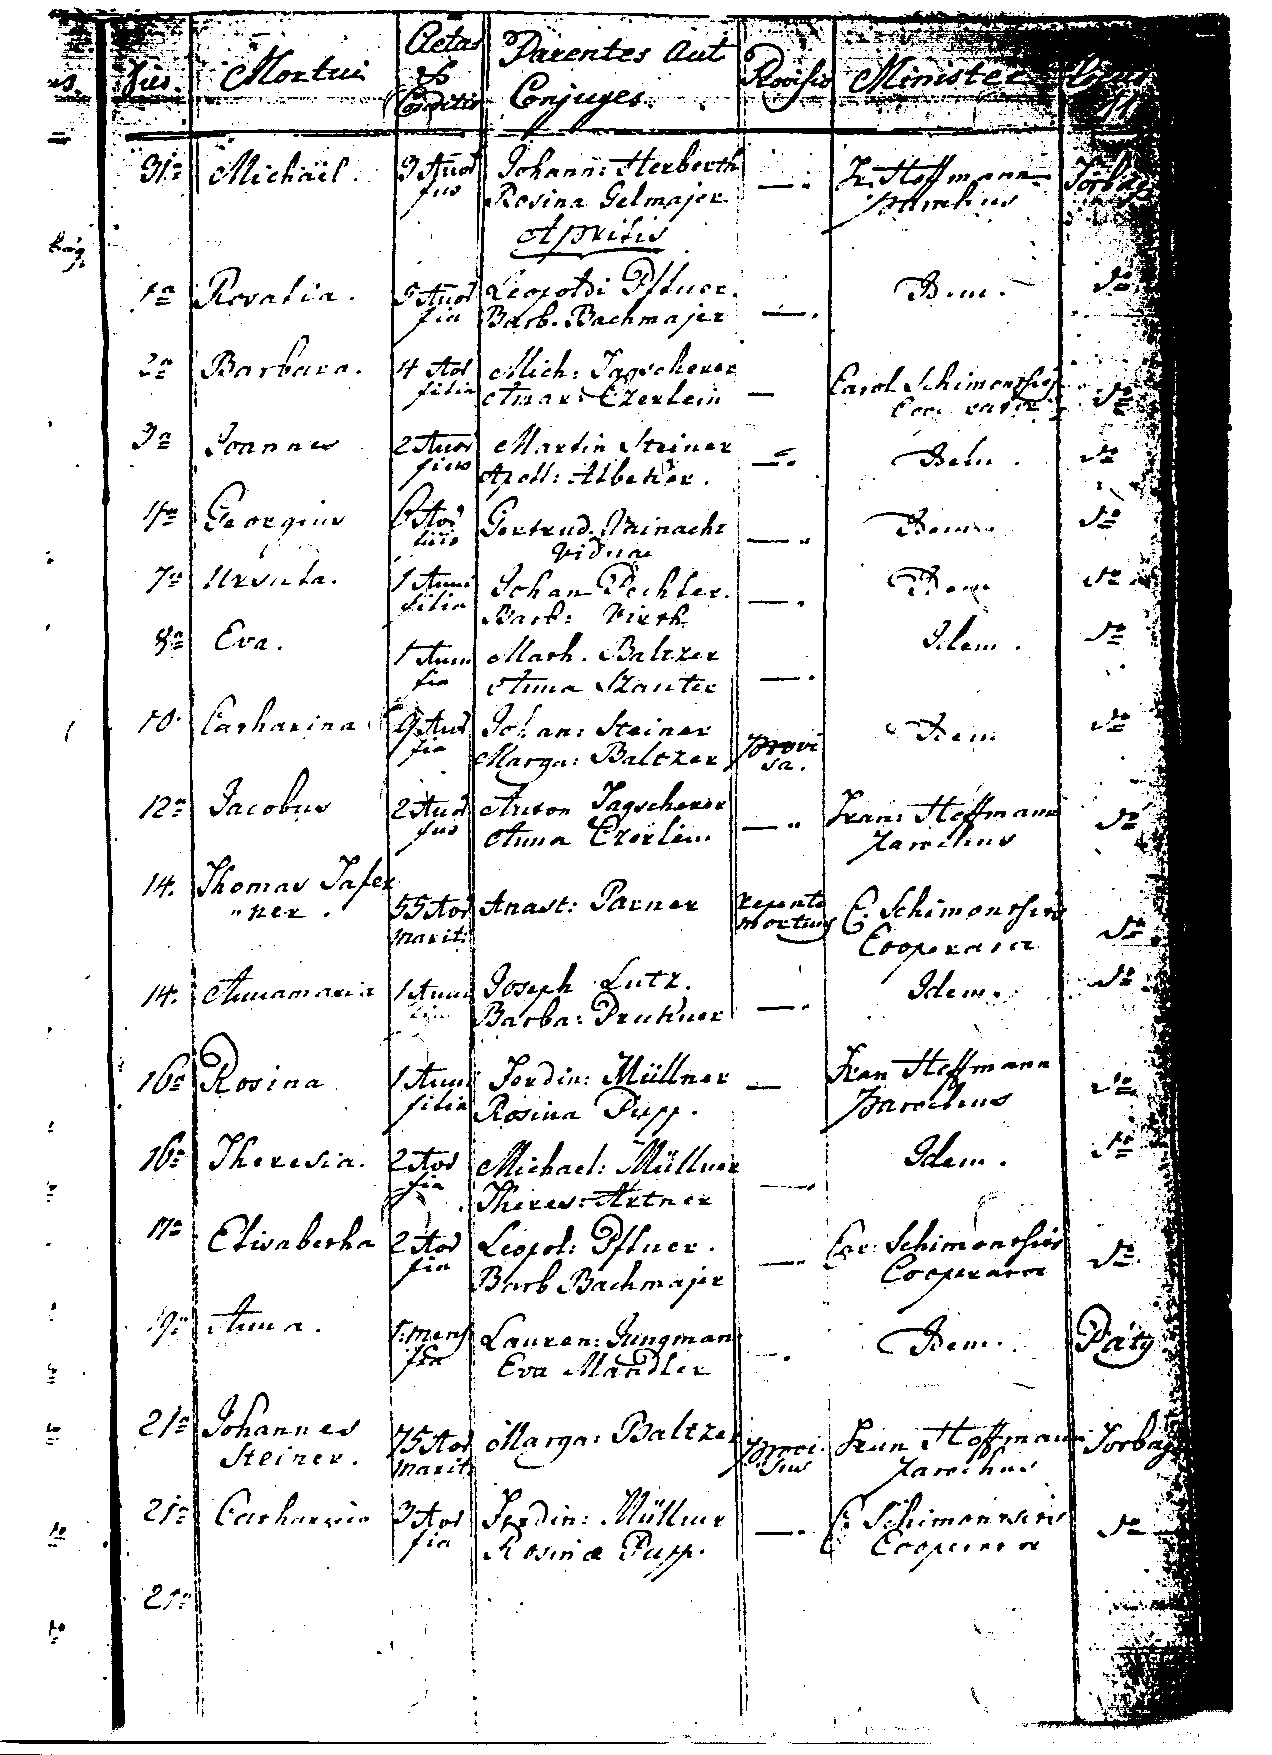 Dies. Mortui Aetas & Conditio Parentes Aut Conjuges. Provisio Minister Locus
31a Michaël. 3 Anor fius Johann: Herberth Rosina Gelmajer —. Fr. Hoffmann Parochus Torbágy
Aprilis
1a Rosalia. 5 Anor fia Leopoldi Pflner. Barb. Bachmajer —. Idem. do
2a Barbara. 4 Anor filia Mich: Tagscherer Anar: Ezerlein — Carol Schimonsfius Coo do
3a Joannes 2 Anor fius Martin Steiner Apoll: Albeker. —. Idem. do
4a Georgius 6 Anor fius Gertrud. Wainacht Viduae —. Idem. do
7a Ursula. 1 Anni filia Johan Pechler. Barb: Wirth —. Idem do
8a Eva. 1 Anni fia Math. Baltzer Anna Szanter —. Idem. do
10. Catharina 9 Anor fia Johan: Steiner Marga: Baltzer provisa. Idem do
12a Jacobus 2 Anor fius Anton Tagscherer Anna Ezerlein —. Fran: Hoffmann Parochus do
14. Thomas Tafer "ner. 55 Anor Marit: Anast: Parner repente mortuus C. Schimonsfius Cooperator do
14. Annamaria 1 Anni Joseph Lutz. Barba: Prukner —. Idem. do
16a Rosina 1 Anni filia Ferdin: Müllner Rosina Pupp. — Fran Hoffmann Parochus do
16a Theresia. 2 Anor fia Michael: Müllner Theres: Artner —. Idem. do
17a Elisabetha 2 Anor fia Leopol: Pflner. Barb Bachmajer —. Car: Schimonsfius Cooperator do
19a Anna. mens fia Lauren: Jungman Eva Mandler —. Idem. Páty
21a Johannes Steiner. 75 Anor Marit: Marga: Baltzer provisus Fran Hoffmann Parochus Torbágy
21a Catharina 3 Anor fia Ferdin: Müllner Rosina Pupp. —. C. Schimonsfius Cooperator do
21a